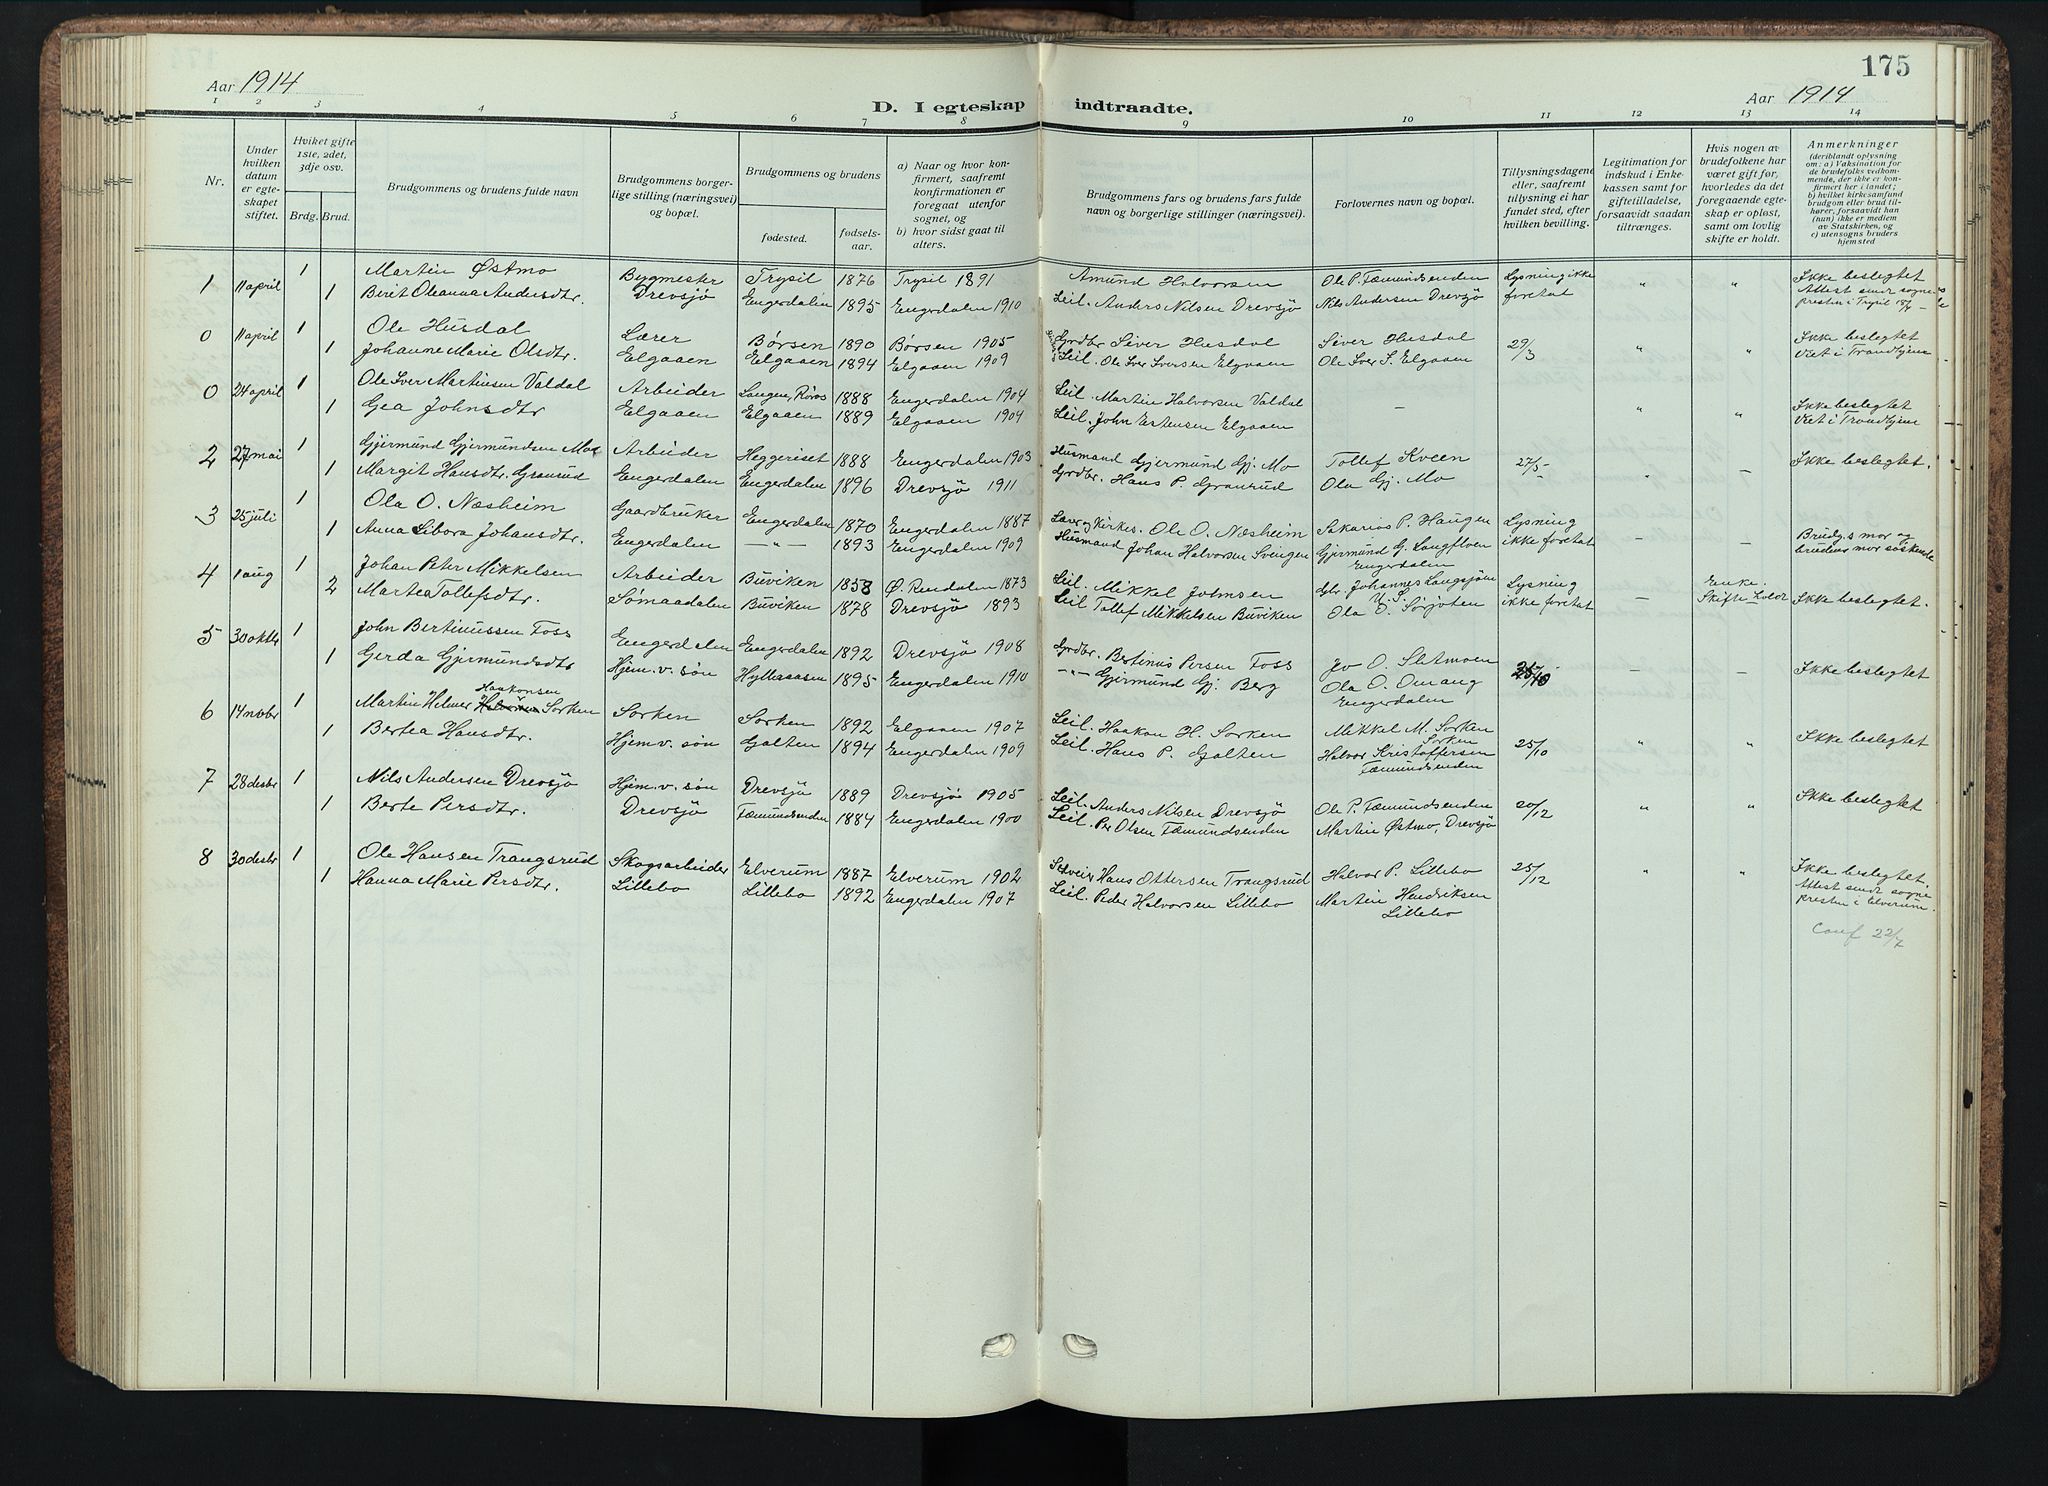 175
Aar 1914
D. I egteskap indtraadte.
Aar 1914
1 2 3 4 5 6 7 8 9 10 11 12 13 14
Nr.
Under hvilken datum er egteskapet stiftet.
Hvilket gifte 1ste, 2det, 3dje osv.
Brdg. Brud.
Brudgommens og brudens fulde navn
Brudgommens borgerlige stilling (næringsvei) og bopæl.
Brudgommens og brudens
fødested.
fødselsaar.
a) Naar og hvor konfirmert, saafremt konfirmationen er foregaat utenfor sognet, og
b) hvor sidst gaat til alters.
Brudgommens fars og brudens fars fulde navn og borgerlige stillinger (næringsvei).
Forlovernes navn og bopæl.
Tillysningsdagene eller, saafremt tillysning ei har fundet sted, efter hvilken bevilling.
Legitimation for indskud i Enkekassen samt for giftetilladelse, forsaavidt saadan tiltrænges.
Hvis nogen av brudefolkene har været gift før, hvorledes da det foregaaende egteskap er opløst, samt om lovlig skifte er holdt.
Anmerkninger
(deriblandt oplysning om: a) Vaksination for de brudefolks vedkommende, der ikke er konfirmert her i landet; b) hvilket kirkesamfund brudgom eller brud tilhører, forsaavidt han (hun) ikke er medlem av Statskirken, og c) utensogns bruders hjemsted
1 11 april 1 Martin Østmo Bygmester Trysil 1876 Trysil 1891 Amund Halvorsen Ole P. Fæmundsenden Lysning ikke " " Ikke beslegtet
1 Berit Oleanna Andersdtr. Drevsjø Engerdalen 1895 Engerdalen 1910 Leil. Anders Nilsen Drevsjø Nils Andersen Drevsjø foretat Attest sendt sogne-
presten i Trysil
0 11 april 1 Ole Husdal Lærer Børsen 1890 Børsen 1905 Grdbr Siver Husdal Siver Husdal 29/3 " " Ikke beslegtet
1 Johanne Marie Olsdtr. Elgaaen Elgaaen 1894 Elgaaen 1909 Leil. Ole Iver Iversen Elgaaen Ole Iver S. Elgaaen Viet i Trondhjem
0 24 april 1 Ole Iver Martinsen Valdal Arbeider Langen, Røros 1888 Engerdalen 1904 Leil. Martin Halvorsen Valdal — " " Ikke beslegtet
1 Gea Johnsdtr Elgaaen Elgaaen 1889 Elgaaen 1904 Leil. John Estensen Elgaaen Viet i Trondhjem
2 27 mai 1 Gjermund Gjermundsen Mo Arbeider Heggeriset 1888 Engerdalen 1903 Husmand Gjermund Gj. Mo Tollef Kveen 27/5 " — Ikke beslegtet.
1 Margit Hansdtr. Granrud Engerdalen Engerdalen 1896 Drevsjø 1911 Grdbr. Hans P. Granrud Ola Gj. Mo
3 25 juli 1 Ola O. Næsheim Gaardbruker Engerdalen 1870 Engerdalen 1887 Ole O. Næsheim Sakarias P. Haugen Lysning — — Brudg.s mor og
1 Anna Libora Johansdtr. Engerdalen — " — 1893 Engerdalen 1909 Husmand Johan Halvorsen Svingen Gjermund G. Langfloen ikke foretat brudens mor søskende
Engerdalen
4 1 aug 1 Johan Peter Mikkelsen Arbeider Buviken 1858 Ø. Rendalen 1873 Leil. Mikkel Johnsen Johannes Langsjøen Lysning — Enke. Ikke beslegtet.
2 Martea Tollefsdtr. Sømaadalen Buviken 1878 Drevsjø 1893 Leil Tollef Mikkelsen Buviken Ola O. ikke foretat Skifte holdt
5 30 oktbr 1 John Bertinussen Foss Engerdalen Engerdalen 1892 Drevsjø 1908 Grdbr. Bertinus Persen Foss Jo O. Sletmoen — — Ikke beslegtet
1 Gerda Gjermundsdtr Hjem. v. søn Hylleraasen 1895 Engerdalen 1910 — " — Gjermund Gj. Berg Ola O. Omang
Engerdalen
6 14 novbr 1 Martin Helmer Haakonsen Sorken Sorken Sorken 1892 Elgaaen 1907 Leil. Haakon H. Sorken Mikkel M. Sorken 25/10 " " Ikke beslegtet
1 Bertea Hansdtr. Hjem. v. søn Galten 1894 Engerdalen 1909 Leil. Hans P. Galten Sorken
Halvor Kristoffersen
Fæmundsenden
7 28 desbr 1 Nils Andersen Drevsjø Hjem. v. søn Drevsjø 1889 Drevsjø 1905 Leil. Anders Nilsen Drevsjø Ole P. Fæmundsenden 20/12 " " Ikke beslegtet
1 Berte Persdtr. Drevsjø Fæmundsenden 1884 Engerdalen 1900 Leil. Per Olsen Fæmundsenden Martin Østmo, Drevsjø
8 30 desbr 1 Ole Hansen Trangsrud Skogsarbeider Elverum 1887 Elverum 1902 Hans Ottersen Trangsrud Halvor P. Lillebo 25/12 " " Ikke beslegtet.
1 Hanna Marie Persdtr. Lillebo Lillebo 1892 Engerdalen 1907 Leil. Peder Halvorsen Lillebo Martin Hendriksen Attest sendt sogne-
Lillebo presten i Elverum.
Conf 22/7